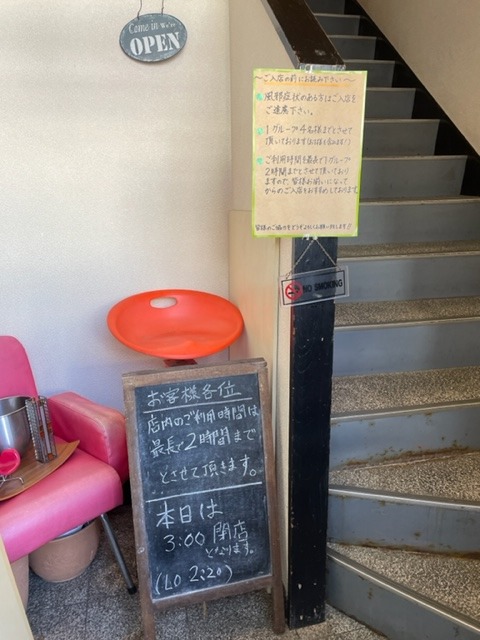 Come in We're
OPEN
～ご入店の前にお読み下さい～
風邪症状のある方はご入店を
ご遠慮下さい。
1グループ4名様までとさせて
頂いております
ご利用時間を最長で1グループ
2時間までとさせて頂いており
ますので、皆様お揃いになって
からのご入店をおすすめしております。
皆様のご協力をどうぞよろしくお願い致します!!
NO SMOKING
お客様各位
店内のご利用時間は
最長で2時間まで
とさせて頂きます。
本日は
3:00 閉店
となります。
(LO 2:20)